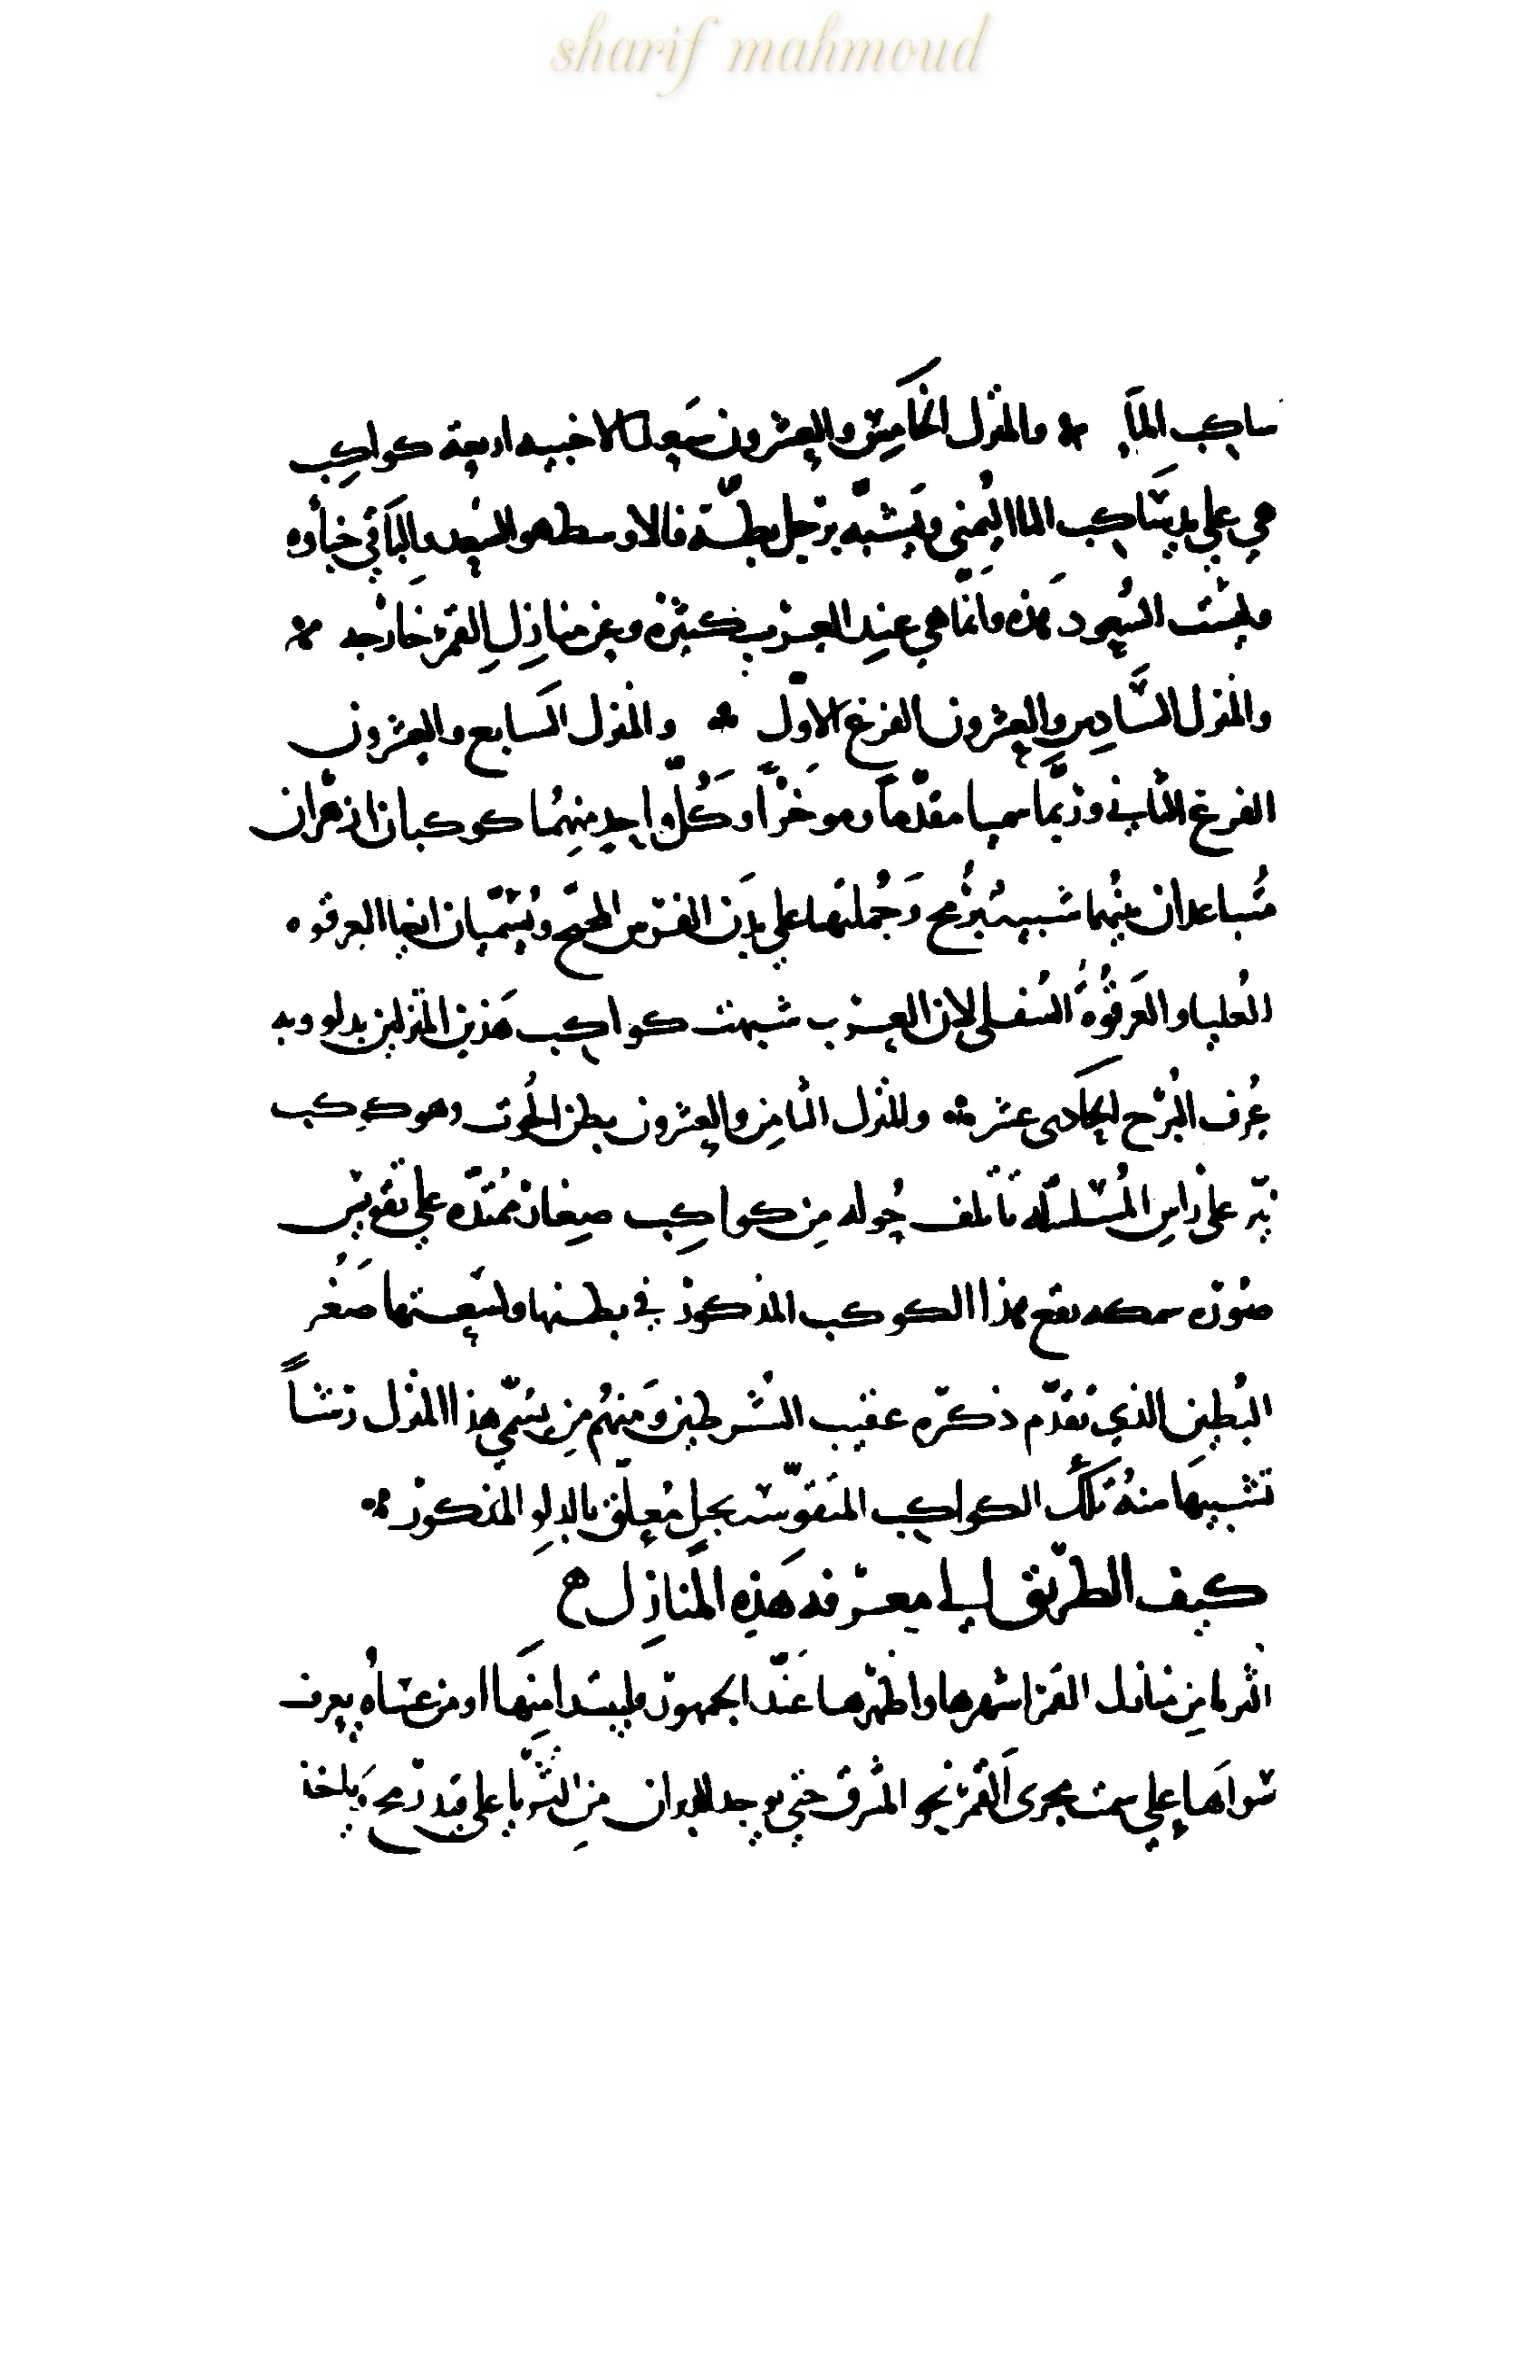 sharif mahmoud
ساكب الماء ※ والمنزل الخامس والعشرون سعد الاخبيه اربعة كواكب
هي على يد ساكب الما اليمني وتشبّه برجل بطّة فالاوسط هو السعد والباقي خباؤه
وليست السعود هذه وانما هي عند العرب كثيرة وعن منازل القمر خارجه ※
والمنزل السادس والعشرون الفرغ الاول ※ والمنزل السابع والعشرون
الفرغ الثاني وربّما سميا مقدّماً وموخراً وكلّ واحد منهما كوكبان ازهران
متباعدان بينهما شبيه برمح وجملتها على بدن الفرس المجنح ويسمّيان ايضا العرقوه
العليا والعرقوة السفلى لان العرب شبهت كواكب هذين المنزلين بدلو وبه
عرف البرج الحادى عشر ※ والمنزل الثامن والعشرون بطن الحوت وهو كوكب
نيّر على راس المسلسلة تاتلف حوله من كواكب صغار ممتدّه على تقويس
صورة سمكه يقع هذا الكوكب المذكور في بطنها ولسعتها صغر
البطين الذي تقدّم ذكره عقيب الشرطين ومنهم من يسمّي هذا المنزل رشاً
تشبيها منه تلك الكواكب المتقوّسه بحبل معلّق بالدلو المذكور ※
كيف الطريق الى معرفه هذه المنازل ح
الثريا من منازل القمر اشهرها واظهرها عند الجمهور وليبتدا منها او من عساه يعرف
سواها على سمت مجرى القمر نحو المشرق حتى يوجد الدبران من الثريّا على قيد رمح وياخذ